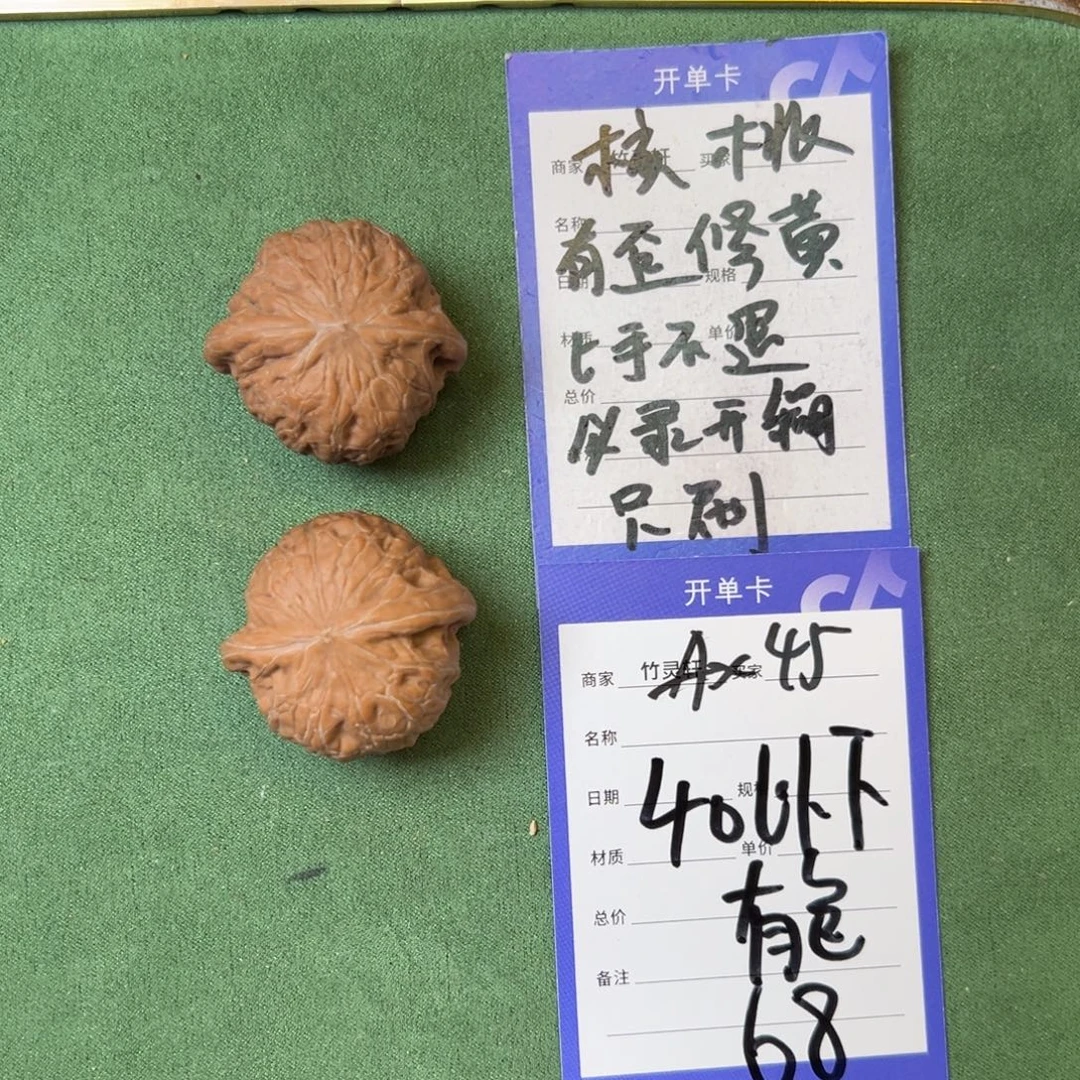 开单卡
核桃
商家 竹灵轩 买家
名称
有歪修黄
日期 规格
材质 单价
上手不退
总价
必录开箱
只刷
开单卡
45
商家 竹灵轩 买家
名称
40以下
日期 规格
材质 单价
有色
总价
备注
68